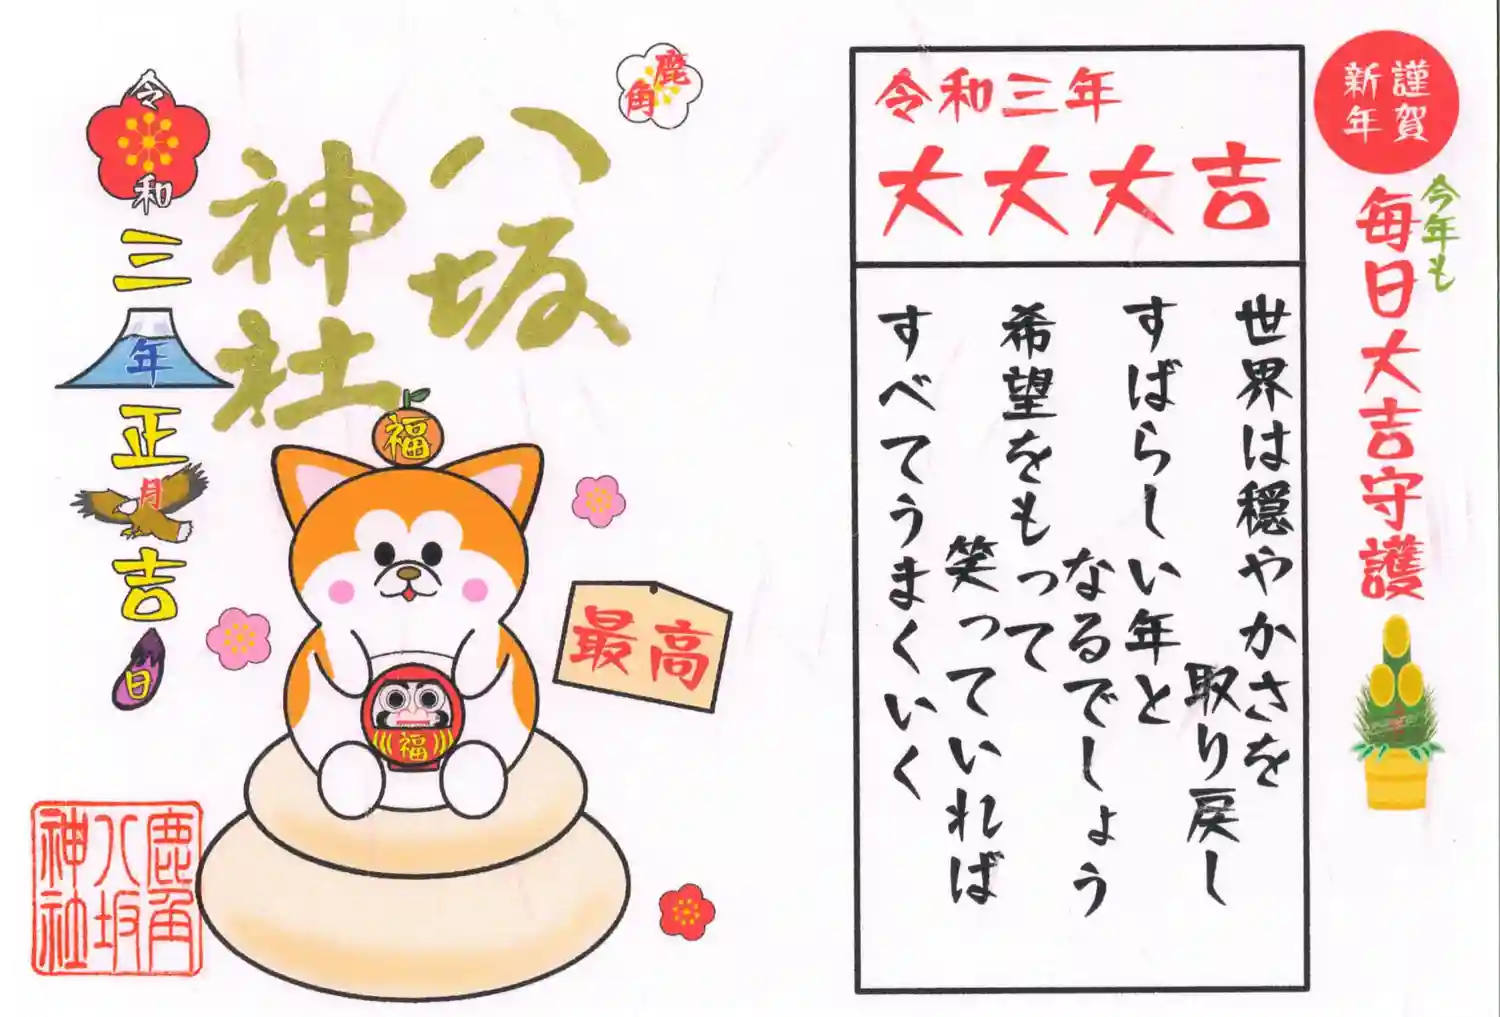 謹賀
新年
今年も
毎日大吉守護
令和三年
大大大吉
世界は穏やかさを
取り戻し
すばらしい年と
なるでしょう
希望をもって
笑っていれば
すべてうまくいく
鹿角
八坂
神社
令和三年正月吉日
福
福
最高
鹿角
八坂
神社